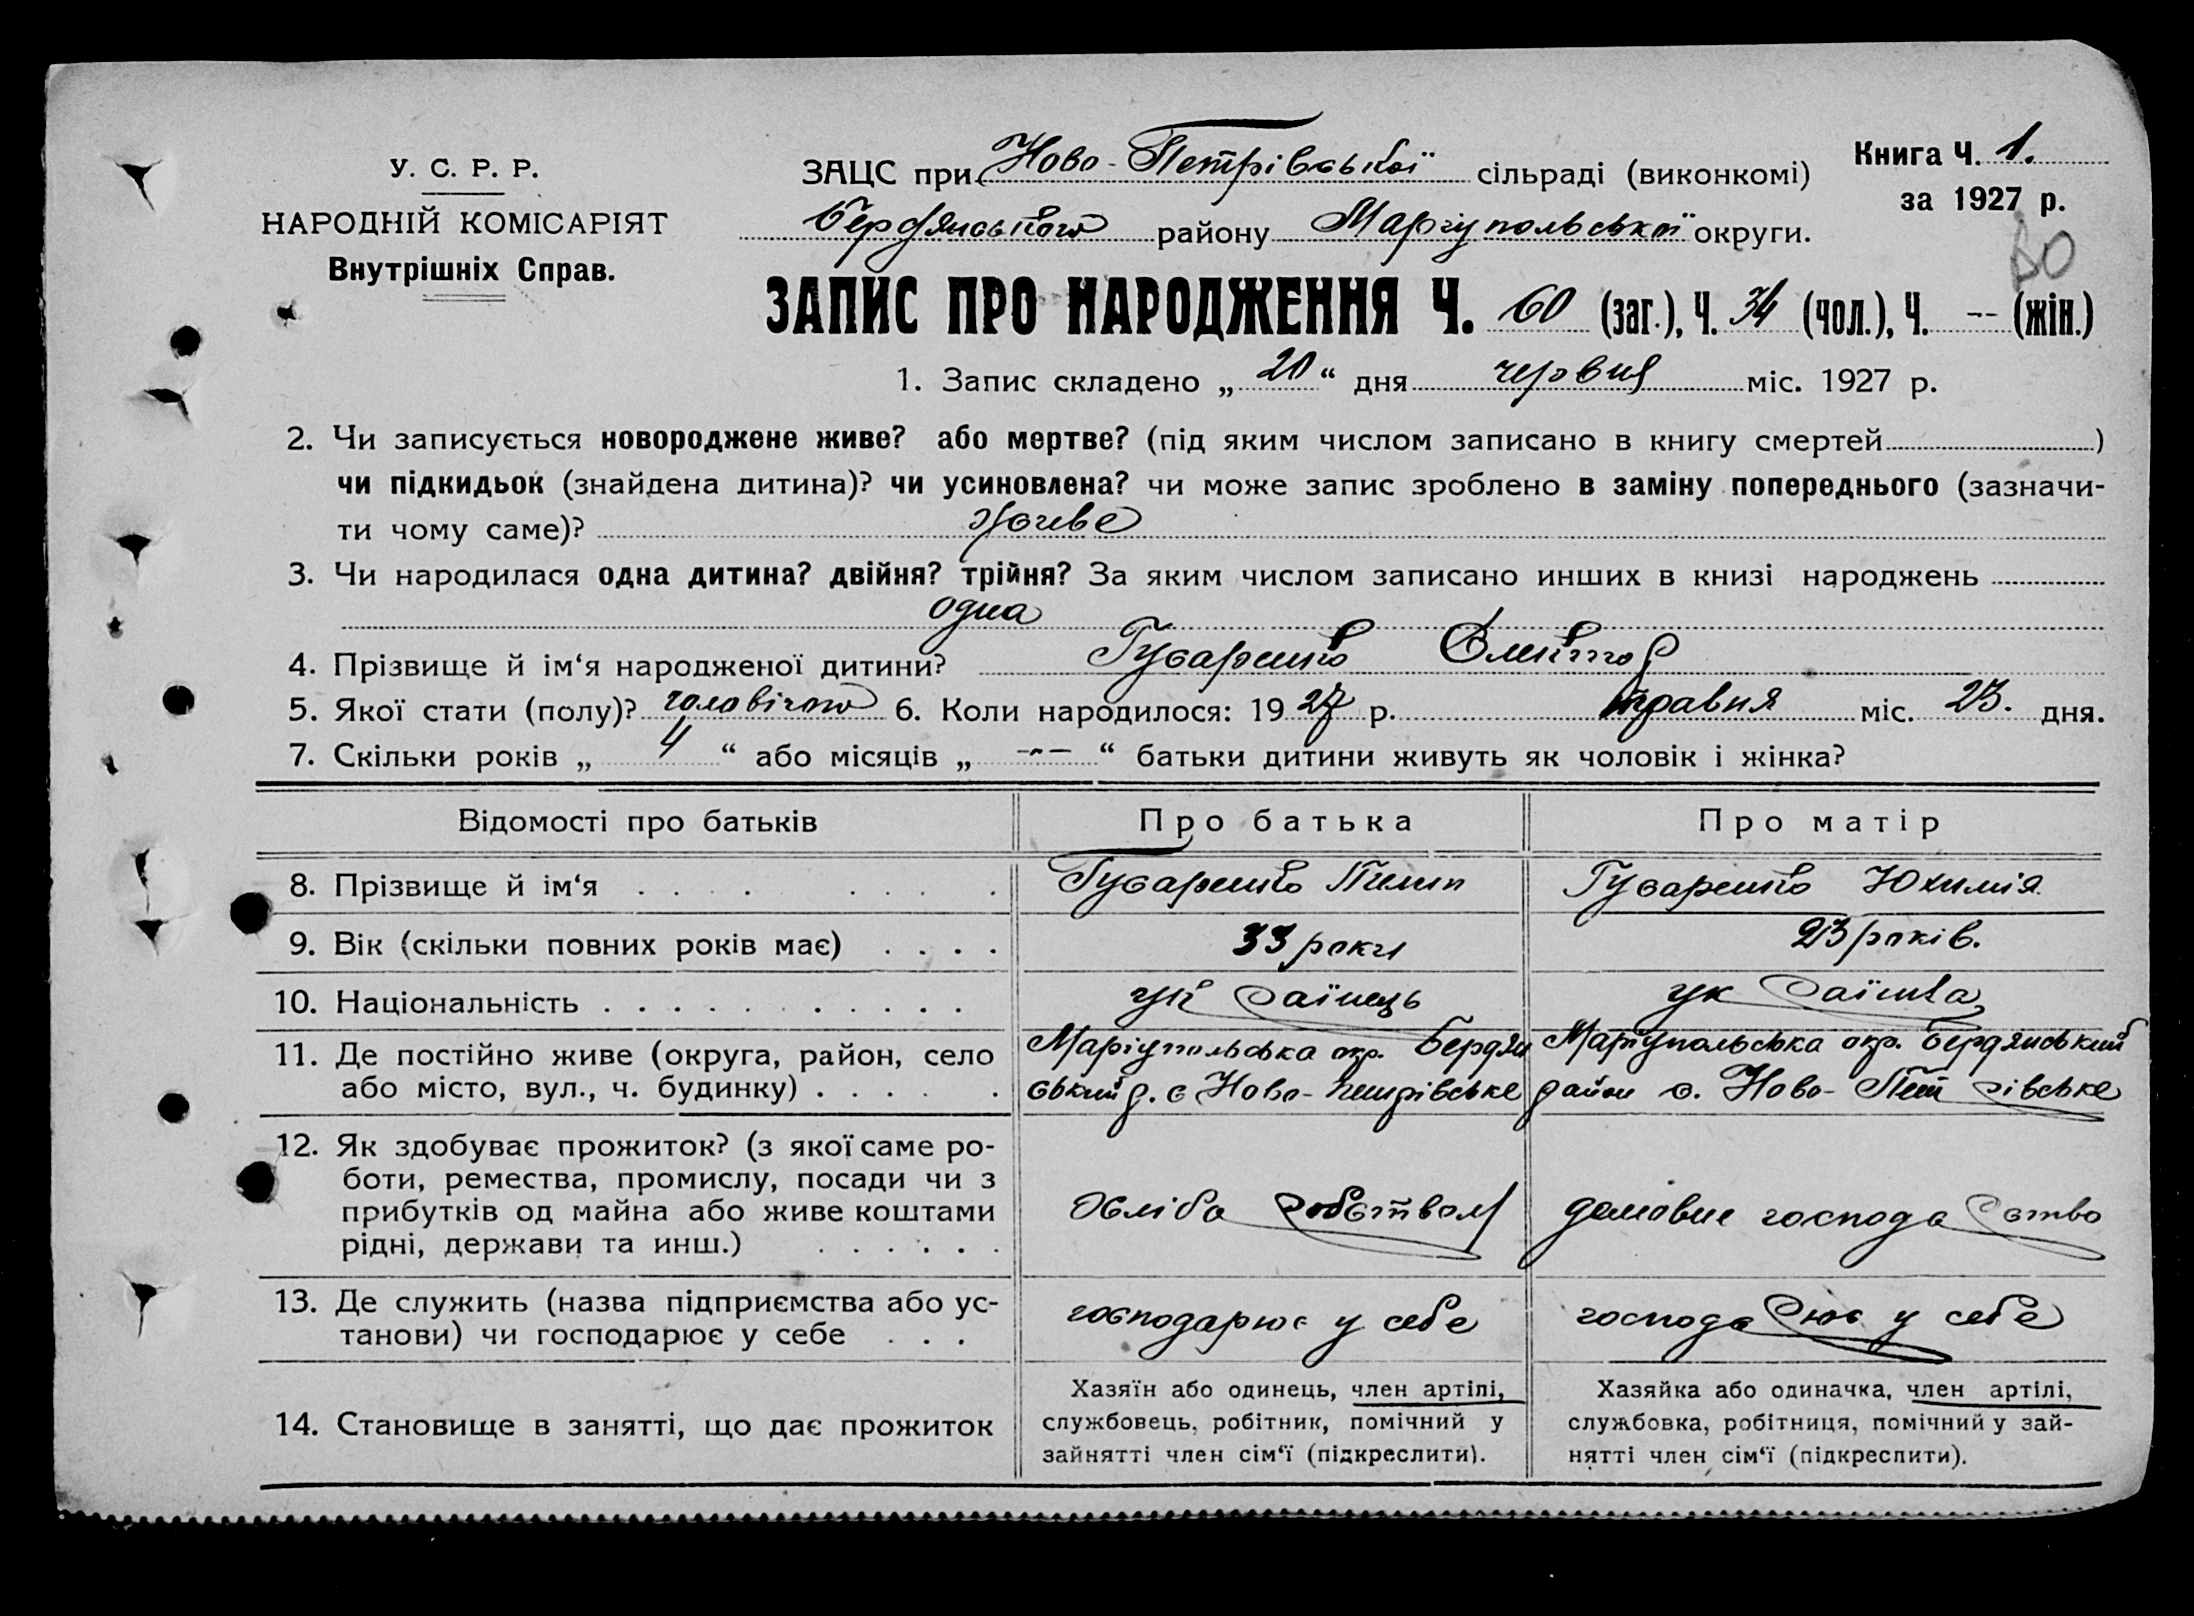 У. С. Р. Р.
НАРОДНІЙ КОМІСАРІЯТ
Внутрішніх Справ.
ЗАЦС при Ново-Петрівської сільраді (виконкомі)
Книга Ч. 1.
за 1927 р.
Бердянського району Маріупольської округи.
80
ЗАПИС ПРО НАРОДЖЕННЯ Ч. 60 (заг.), Ч. 34 (чол.), Ч. -- (жін.)
1. Запис складено „ 20 “ дня червня міс. 1927 р.
2. Чи записується новороджене живе? або мертве? (під яким числом записано в книгу смертей )
чи підкидьок (знайдена дитина)? чи усиновлена? чи може запис зроблено в заміну попереднього (зазначи-
ти чому саме)? живе
3. Чи народилася одна дитина? двійня? трійня? За яким числом записано инших в книзі народжень
одна
4. Прізвище й ім‘я народженої дитини? Гусаренко
5. Якої стати (полу)? чоловічого 6. Коли народилося: 1927 р. травня міс. 23. дня.
7. Скільки років „ 4 “ або місяців „ --- “ батьки дитини живуть як чоловік і жінка?
Відомості про батьків Про батька Про матір
8. Прізвище й ім‘я . . . . . . . Гусаренко Пилип Гусаренко Юхимія
9. Вік (скільки повних років має) . . . . 33 роки 23 років.
10. Національність . . . . . . . . . . . українець українка
11. Де постійно живе (округа, район, село Маріупольська окр. Бердян Маріупольська окр. Бердянський
або місто, вул., ч. будинку) . . . . . ський р. с Ново-Петрівське район с. Ново-Петрівське
12. Як здобуває прожиток? (з якої саме ро-
боти, ремества, промислу, посади чи з
прибутків од майна або живе коштами хліборобством домовне господарство
рідні, держави та инш.) . . . . . .
13. Де служить (назва підприємства або ус- господарює у себе господарює у себе
танови) чи господарює у себе . . .
14. Становище в занятті, що дає прожиток
Хазяїн або одинець, член артілі,
службовець, робітник, помічний у
зайнятті член сім‘ї (підкреслити).
Хазяйка або одиначка, член артілі,
службовка, робітниця, помічний у зай-
нятті член сім‘ї (підкреслити).